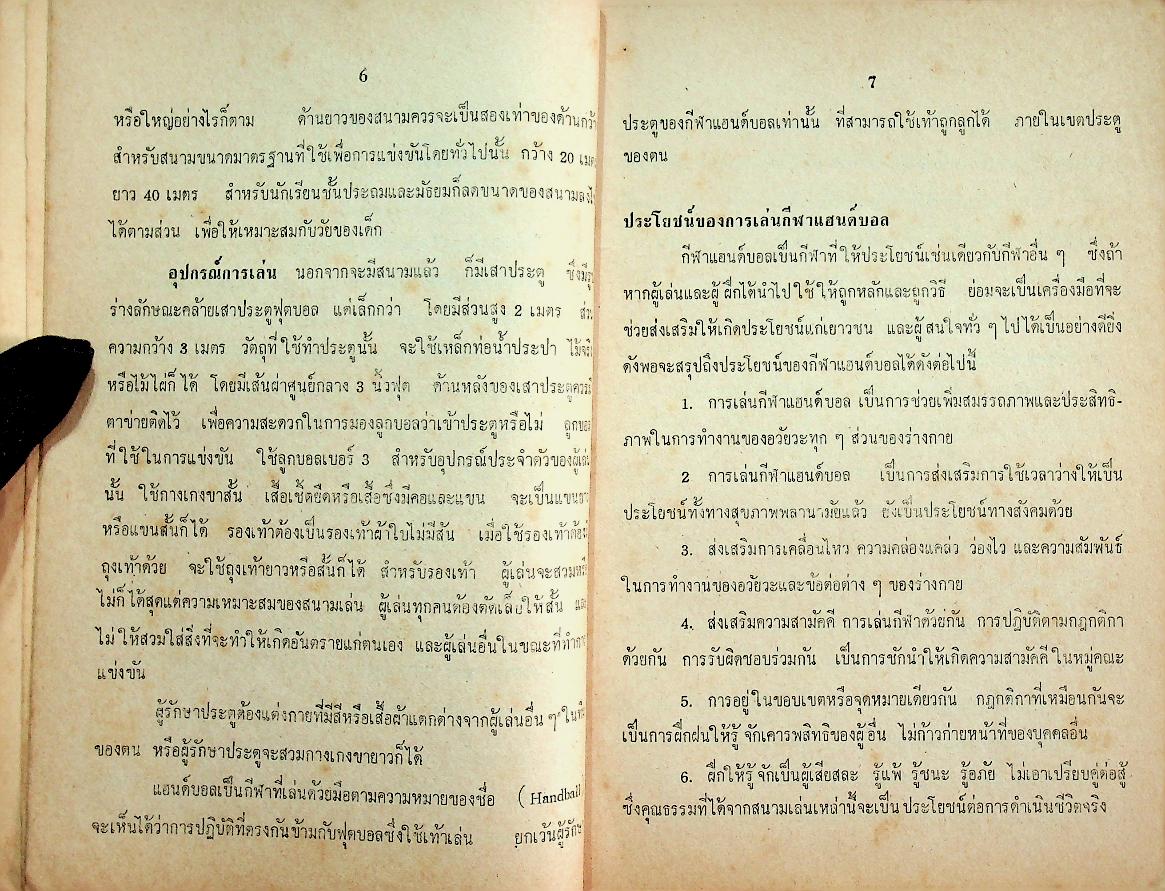 6
หรือใหญ่อย่างไรก็ตาม ด้านยาวของสนามควรจะเป็นสองเท่าของด้านกว้าง
สำหรับสนามขนาดมาตรฐานที่ใช้เพื่อการแข่งขันโดยทั่วไปนั้น กว้าง 20 เมตร
ยาว 40 เมตร สำหรับนักเรียนชั้นประถมและมัธยมก็ลดขนาดของสนามลงไป
ได้ตามส่วน เพื่อให้เหมาะสมกับวัยของเด็ก
อุปกรณ์การเล่น นอกจากจะมีสนามแล้ว ก็มีเสาประตู ซึ่งมีรูป
ร่างลักษณะคล้ายเสาประตูฟุตบอล แต่เล็กกว่า โดยมีส่วนสูง 2 เมตร ส่วน
ความกว้าง 3 เมตร วัตถุที่ใช้ทำประตูนั้น จะใช้เหล็กท่อน้ำประปา
หรือไม้ไผ่ก็ได้ โดยมีเส้นผ่าศูนย์กลาง 3 นิ้วฟุต ด้านหลังของเสาประตูควรมี
ตาข่ายติดไว้ เพื่อความสะดวกในการมองลูกบอลว่าเข้าประตูหรือไม่ ลูกบอล
ที่ใช้ในการแข่งขัน ใช้ลูกบอลเบอร์ 3 สำหรับอุปกรณ์ประจำตัวของผู้เล่น
นั้น ใช้กางเกงขาสั้น เสื้อเชิ้ตยืดหรือเสื้อซึ่งมีคอและแขน จะเป็นแขนยาว
หรือแขนสั้นก็ได้ รองเท้าต้องเป็นรองเท้าผ้าใบไม่มีส้น เมื่อใช้รองเท้าก็ต้อง
ถุงเท้าด้วย จะใช้ถุงเท้ายาวหรือสั้นก็ได้ สำหรับรองเท้า ผู้เล่นจะสวมหรือ
ไม่ก็ได้สุดแต่ความเหมาะสมของสนามเล่น ผู้เล่นทุกคนต้องตัดเล็บให้สั้น และ
ไม่ให้สวมใส่สิ่งที่จะทำให้เกิดอันตรายแก่ตนเอง และผู้เล่นอื่นในขณะที่ทำการ
แข่งขัน
ผู้รักษาประตูต้องแต่งกายที่มีสีหรือเสื้อผ้าแตกต่างจากผู้เล่นอื่น ๆ ในทีม
ของตน หรือผู้รักษาประตูจะสวมกางเกงขายาวก็ได้
แฮนด์บอลเป็นกีฬาที่เล่นด้วยมือตามความหมายของชื่อ (Handball)
จะเห็นได้ว่าการปฏิบัติที่ตรงกันข้ามกับฟุตบอลซึ่งใช้เท้าเล่น ยกเว้นผู้รักษา
7
ประตูของกีฬาแฮนด์บอลเท่านั้น ที่สามารถใช้เท้าถูกลูกได้ ภายในเขตประตู
ของตน
ประโยชน์ของการเล่นกีฬาแฮนด์บอล
กีฬาแฮนด์บอลเป็นกีฬาที่ให้ประโยชน์เช่นเดียวกับกีฬาอื่น ๆ ซึ่งถ้า
หากผู้เล่นและผู้ฝึกได้นำไปใช้ให้ถูกหลักและถูกวิธี ย่อมจะเป็นเครื่องมือที่จะ
ช่วยส่งเสริมให้เกิดประโยชน์แก่เยาวชน และผู้สนใจทั่ว ๆ ไปได้เป็นอย่างดียิ่ง
ดังพอจะสรุปถึงประโยชน์ของกีฬาแฮนด์บอลได้ดังต่อไปนี้
1. การเล่นกีฬาแฮนด์บอล เป็นการช่วยเพิ่มสมรรถภาพและประสิทธิ-
ภาพในการทำงานของอวัยวะทุก ๆ ส่วนของร่างกาย
2 การเล่นกีฬาแฮนด์บอล เป็นการส่งเสริมการใช้เวลาว่างให้เป็น
ประโยชน์ทั้งทางสุขภาพพลานามัยแล้ว ยังเป็นประโยชน์ทางสังคมด้วย
3. ส่งเสริมการเคลื่อนไหว ความคล่องแคล่ว ว่องไว และความสัมพันธ์
ในการทำงานของอวัยวะและข้อต่อต่าง ๆ ของร่างกาย
4. ส่งเสริมความสามัคคี การเล่นกีฬาด้วยกัน การปฏิบัติตามกฎกติกา
ด้วยกัน การรับผิดชอบร่วมกัน เป็นการชักนำให้เกิดความสามัคคีในหมู่คณะ
5. การอยู่ในขอบเขตหรือจุดหมายเดียวกัน กฎกติกาที่เหมือนกันจะ
เป็นการฝึกฝนให้รู้จักเคารพสิทธิของผู้อื่น ไม่ก้าวก่ายหน้าที่ของบุคคลอื่น
6. ฝึกให้รู้จักเป็นผู้เสียสละ รู้แพ้ รู้ชนะ รู้อภัย ไม่เอาเปรียบคู่ต่อสู้
ซึ่งคุณธรรมที่ได้จากสนามเล่นเหล่านี้จะเป็นประโยชน์ต่อการดำเนินชีวิตจริง